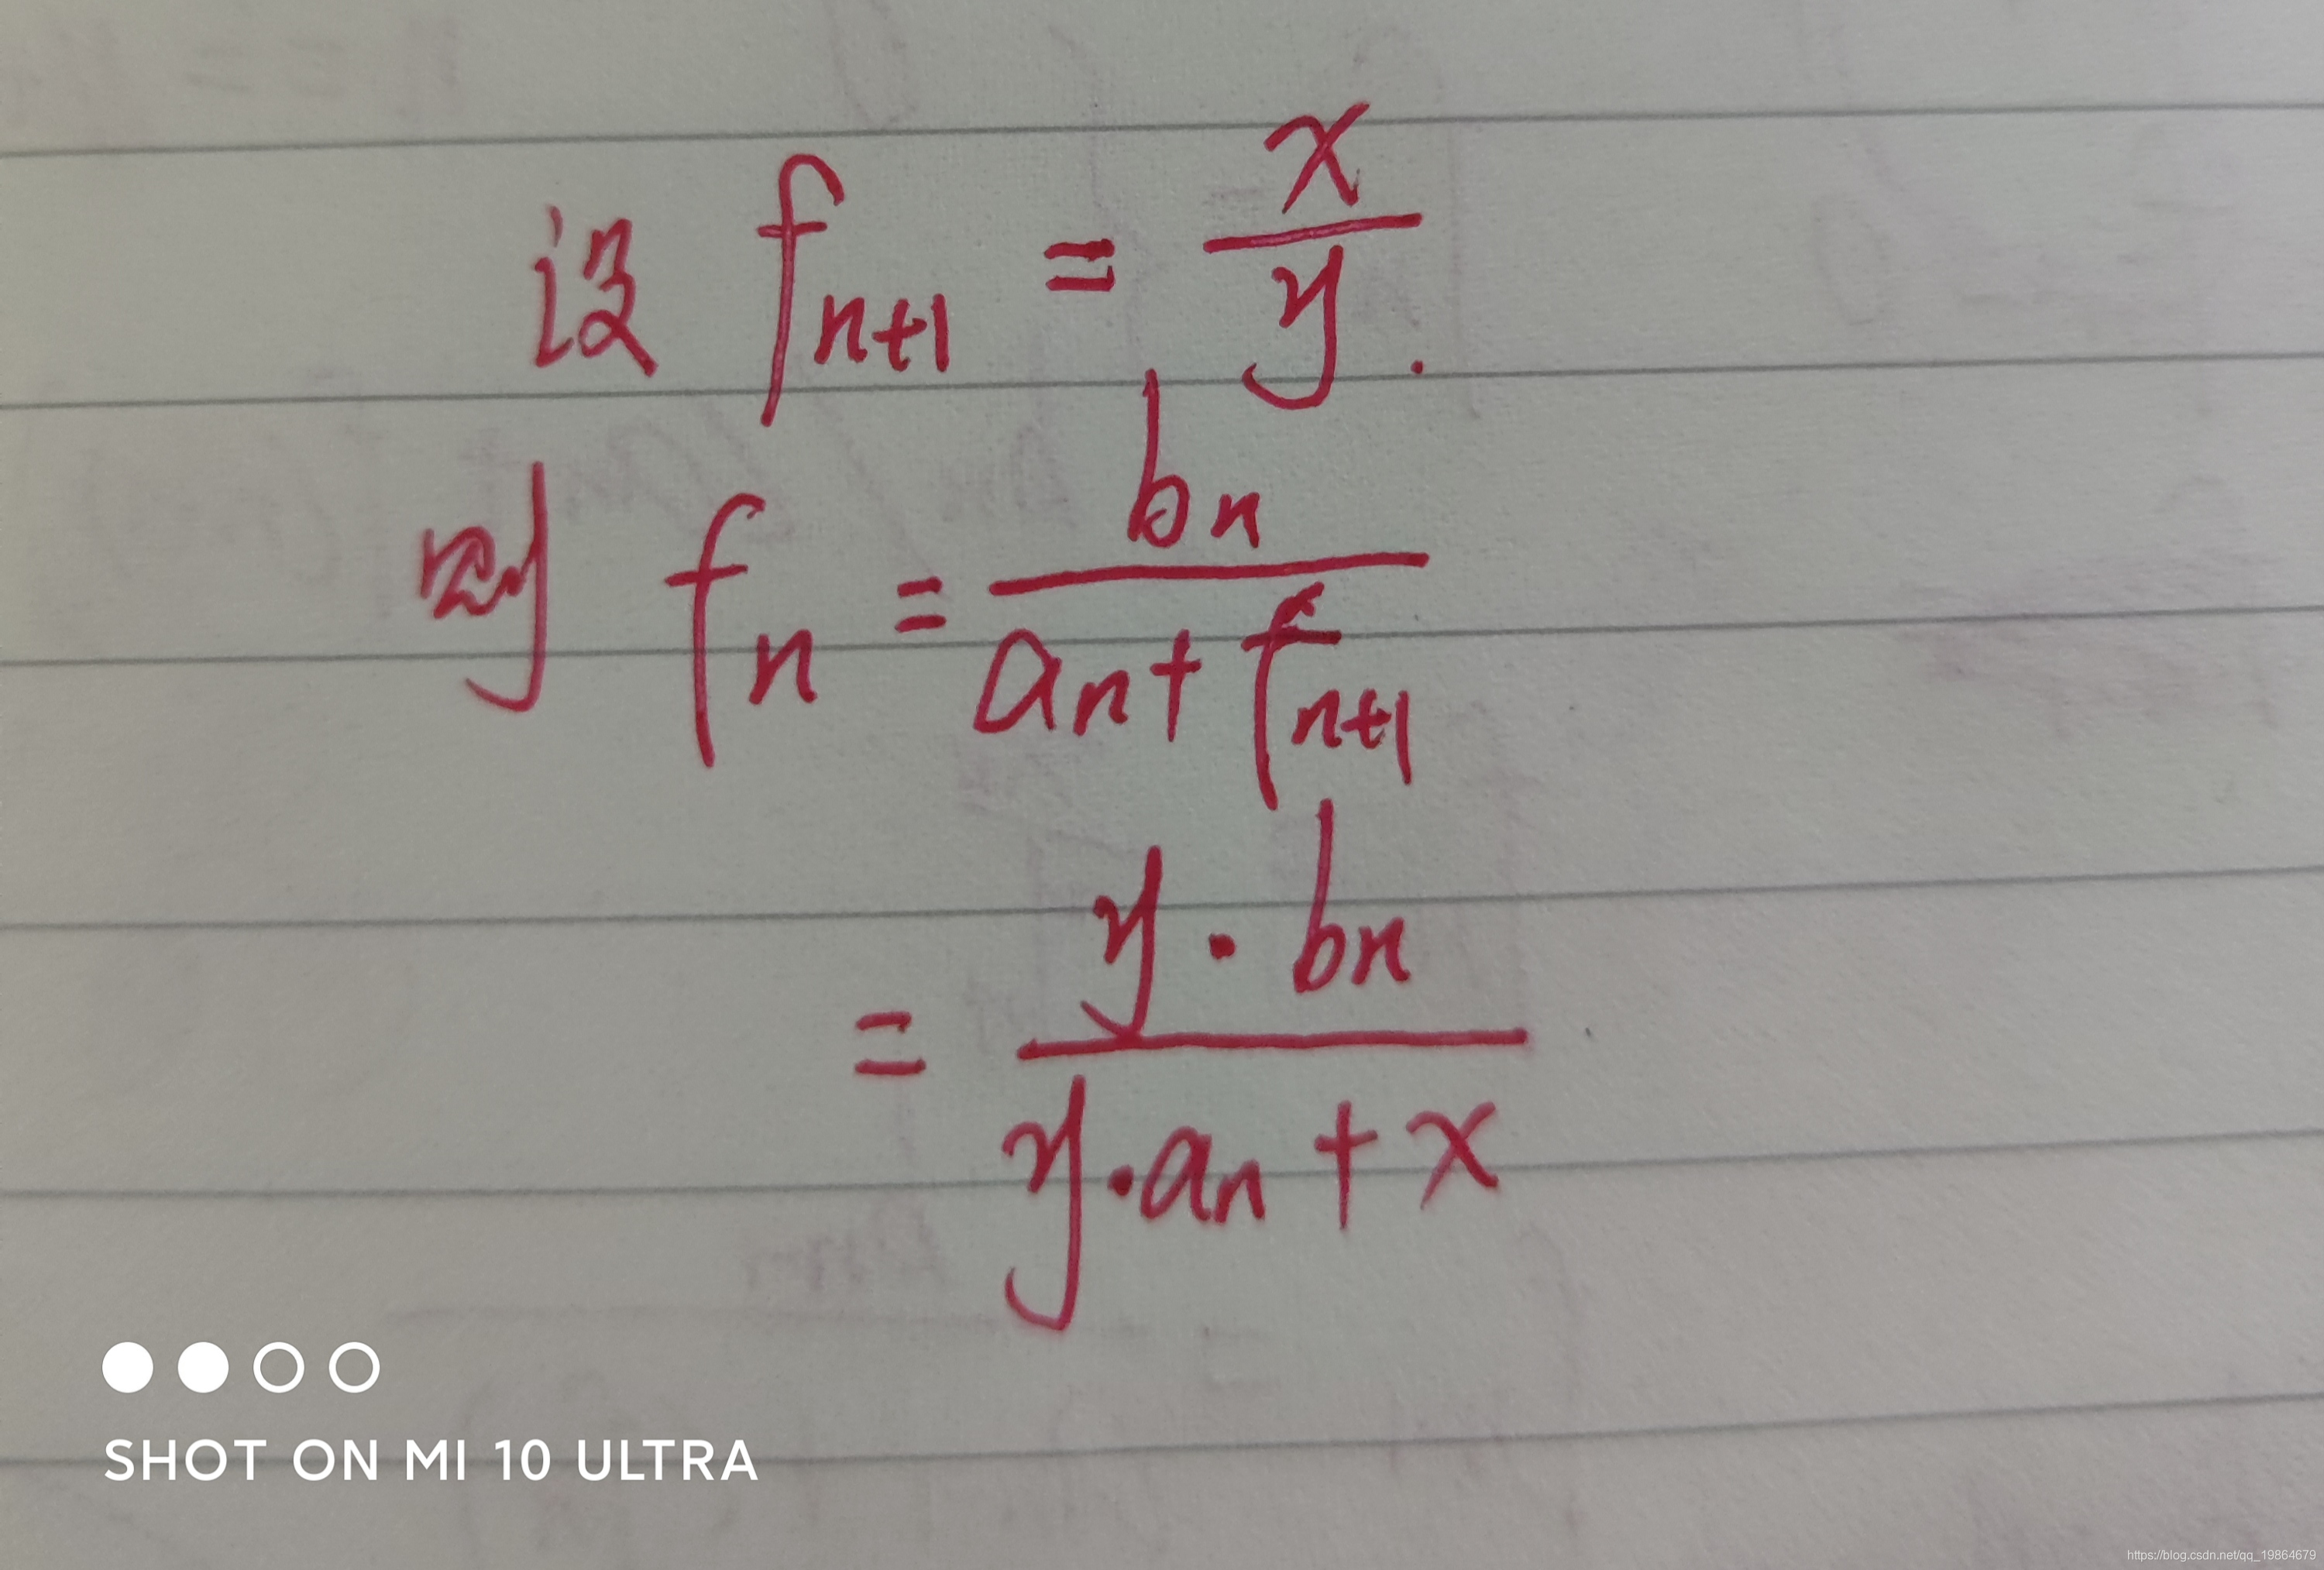 设 f_{n+1} = \frac{x}{y}.
则 f_n = \frac{b_n}{a_n + f_{n+1}}
= \frac{y \cdot b_n}{y \cdot a_n + x}
SHOT ON MI 10 ULTRA
https://blog.csdn.net/qq_19864679